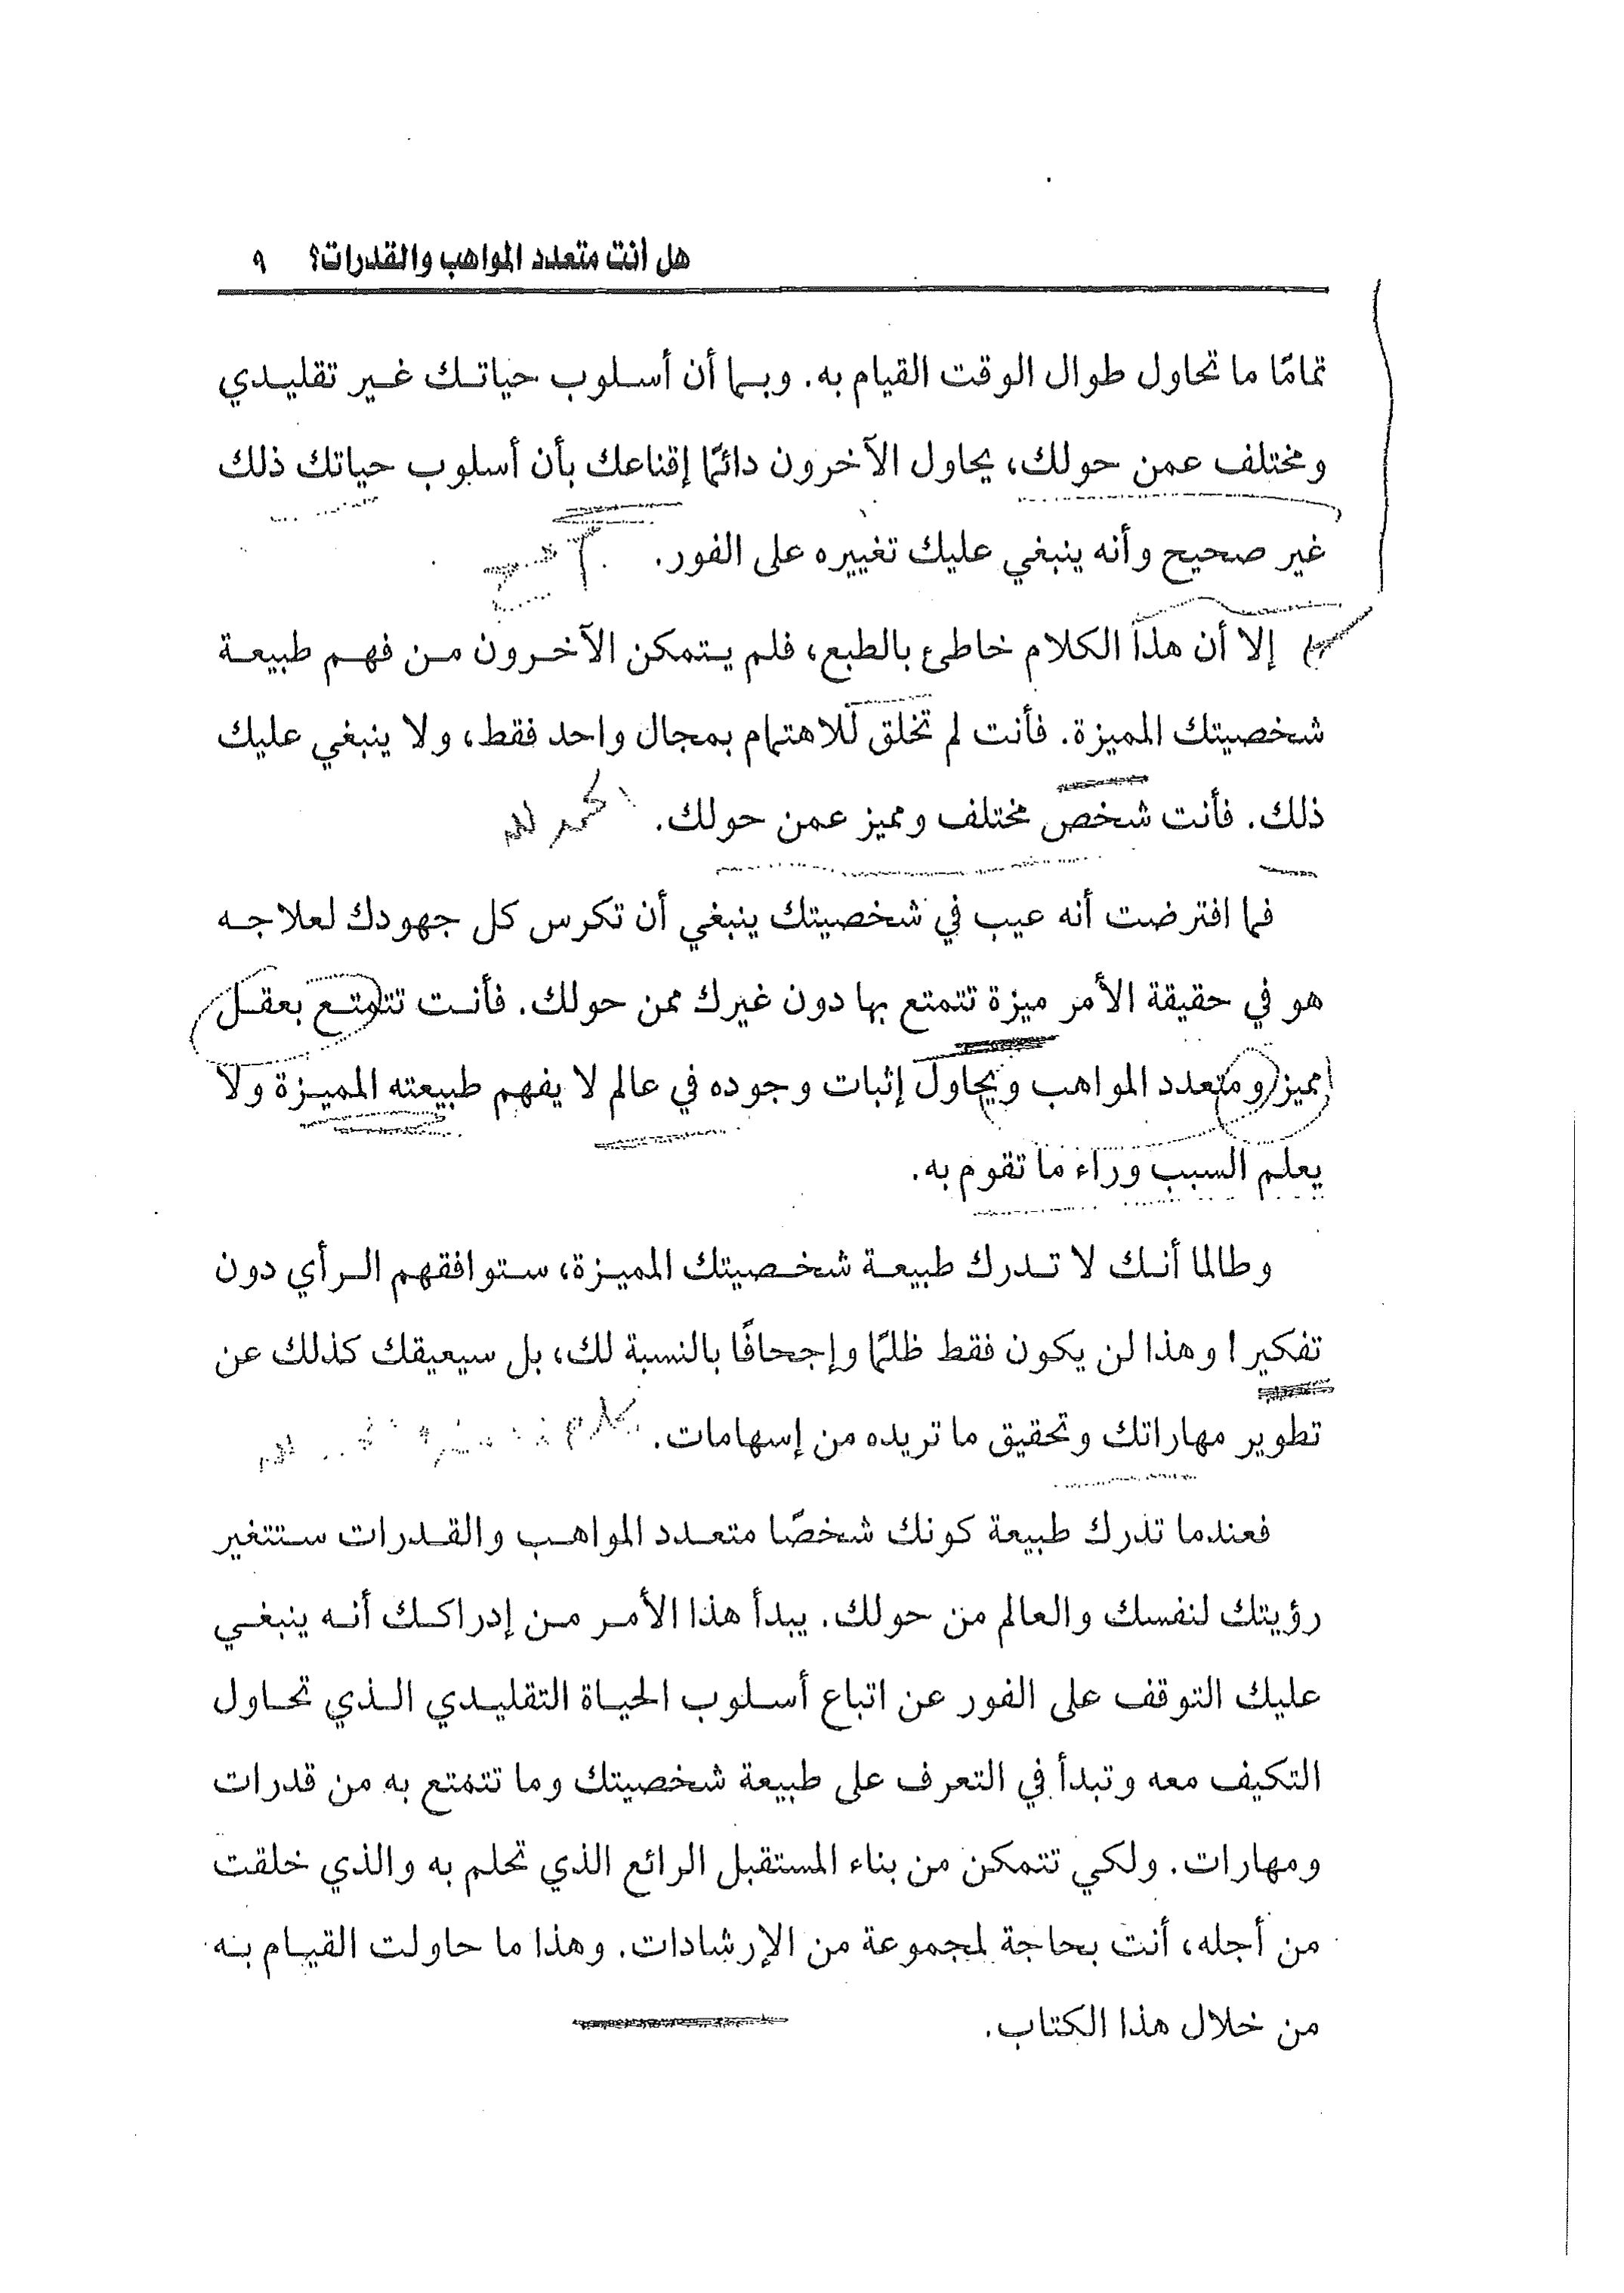 هل أنت متعدد المواهب والقدرات؟ ٩
تمامًا ما تحاول طوال الوقت القيام به. وبما أن أسلوب حياتك غير تقليدي
ومختلف عمن حولك، يحاول الآخرون دائمًا إقناعك بأن أسلوب حياتك ذلك
غير صحيح وأنه ينبغي عليك تغييره على الفور.
إلا أن هذا الكلام خاطئ بالطبع، فلم يتمكن الآخرون من فهم طبيعة
شخصيتك المميزة. فأنت لم تخلق للاهتمام بمجال واحد فقط، ولا ينبغي عليك
ذلك. فأنت شخص مختلف ومميز عمن حولك. الحمد لله
فما افترضت أنه عيب في شخصيتك ينبغي أن تكرس كل جهودك لعلاجه
هو في حقيقة الأمر ميزة تتمتع بها دون غيرك ممن حولك. فأنت تتمتع بعقل
مميز ومتعدد المواهب ويحاول إثبات وجوده في عالم لا يفهم طبيعته المميزة ولا
يعلم السبب وراء ما تقوم به.
وطالما أنك لا تدرك طبيعة شخصيتك المميزة، ستوافقهم الرأي دون
تفكير! وهذا لن يكون فقط ظلمًا وإجحافًا بالنسبة لك، بل سيعيقك كذلك عن
تطوير مهاراتك وتحقيق ما تريده من إسهامات.
فعندما تدرك طبيعة كونك شخصًا متعدد المواهب والقدرات ستتغير
رؤيتك لنفسك والعالم من حولك. يبدأ هذا الأمر من إدراكك أنه ينبغي
عليك التوقف على الفور عن اتباع أسلوب الحياة التقليدي الذي تحاول
التكيف معه وتبدأ في التعرف على طبيعة شخصيتك وما تتمتع به من قدرات
ومهارات. ولكي تتمكن من بناء المستقبل الرائع الذي تحلم به والذي خلقت
من أجله، أنت بحاجة لمجموعة من الإرشادات. وهذا ما حاولت القيام به
من خلال هذا الكتاب.